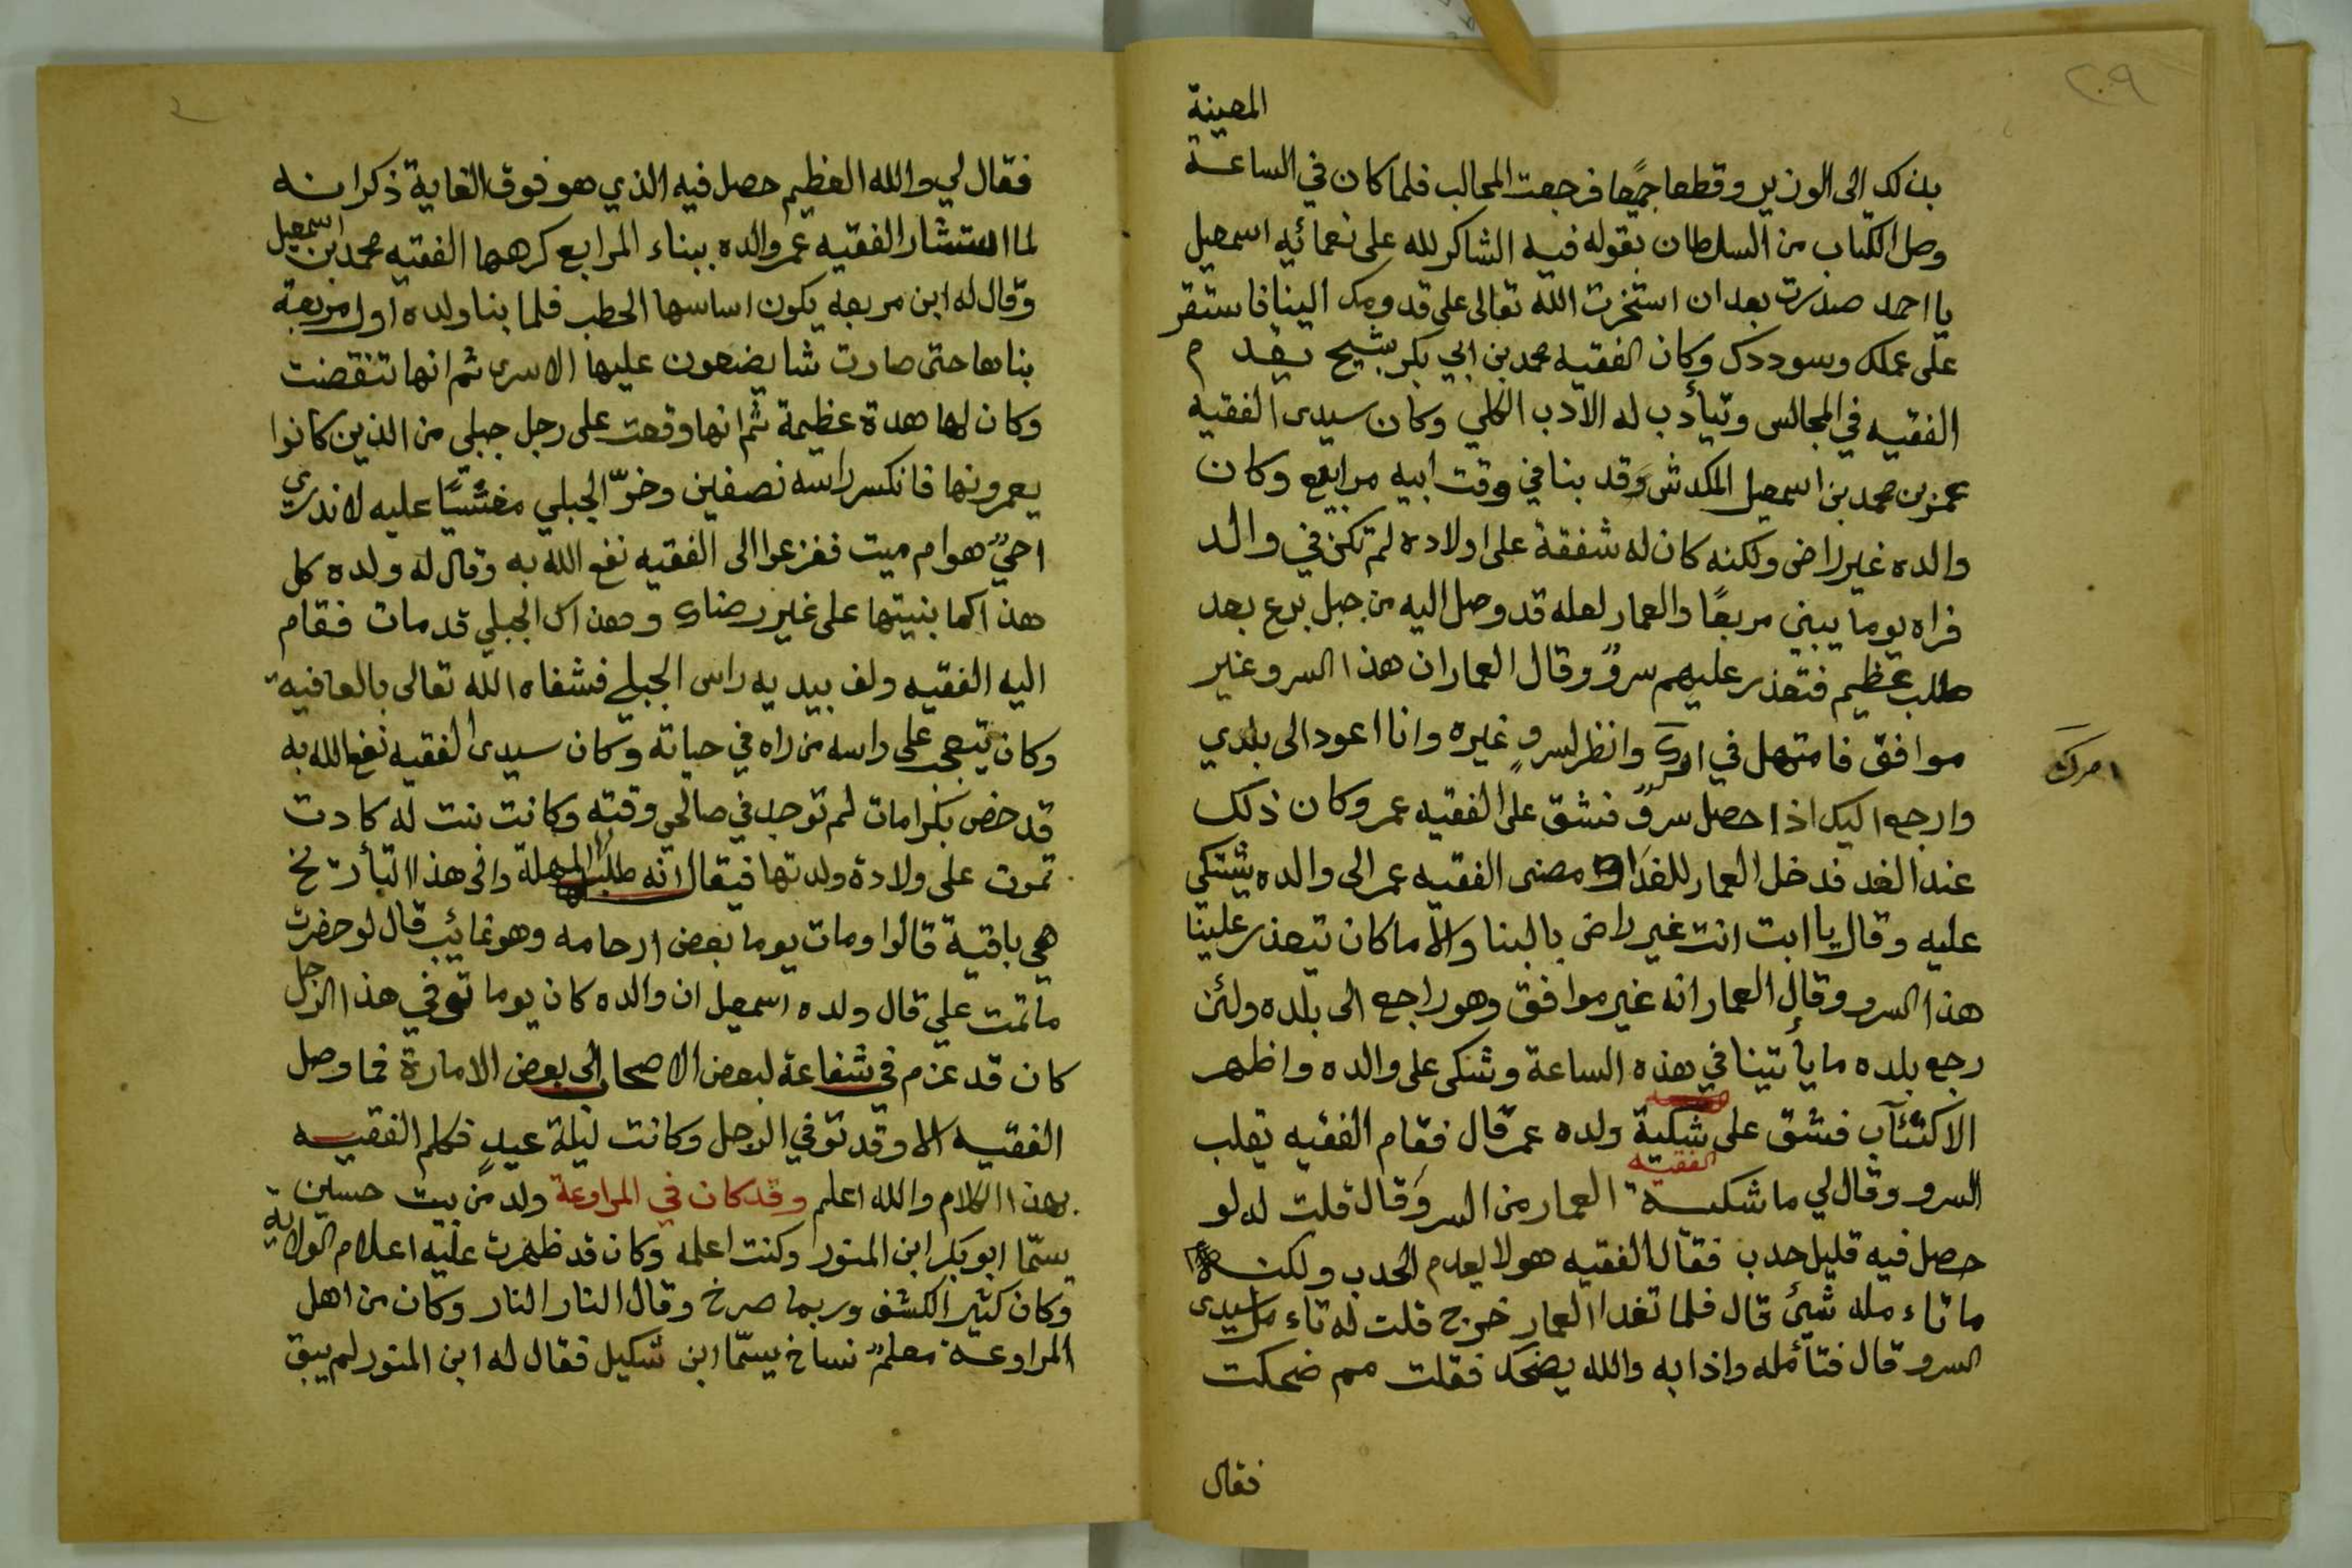 ٢٠٩
المعينة
بذلك الى الوزير وقطعا جمعا فرجعت المجالب فلما كان في الساعة
وصل الكتاب من السلطان بقوله فيه الشاكر لله على نعمائه اسمعيل
يا احمد صدرت بعد ان استخرت الله تعالى على قدومك الينا فاستقر
على عملك وسوددك وكان الفقيه محمد بن ابي بكر شيح يقدم
الفقيه في المجالس ويتأدب له الادب الكلي وكان سيدي الفقيه
عمر بن محمد بن اسمعيل المكدش وقد بنا في وقت ابيه مرابيع وكان
والده غير راض ولكنه كان له شفقة على اولاده لم تكن في والد
فراه يوما يبني مربعًا والعمار لعله قد وصل اليه من جبل برع بعد
طلب عظيم فتعذر عليهم سروٌ وقال العمار ان هذا السرو غير
موافق فامتهل في وانظر لسروٍ غيره وانا اعود الى بلدي
امرك
وارجع اليك اذا حصل سروٌ فشق على الفقيه عمر وكان ذلك
عند الغد فدخل العمار للغدا ومضى الفقيه عمر الى والده يشتكي
عليه وقال يا ابت انت غير راض بالبنا والا ما كان يتعذر علينا
هذا السرو وقال العمار انه غير موافق وهو راجع الى بلده ولئن
رجع بلده ما يأتينا في هذه الساعة وشكى على والده واظهر
الاكتئآب فشق على شكية ولده عمر قال فقام الفقيه يقلب
الفقيه
السرو وقال لي ما شكية العمار من السرو قال قلت له لو
حصل فيه قليل حدب فقال الفقيه هو لا يعدم الحدب ولكنه
ما تاء مله شيئ قال فلما تغدا العمار خرج قلت له تاء مل سيدي
السرو قال فتأمله واذا به والله يضحك فقلت مم ضحكت
فقال
فقال لي والله العظيم حصل فيه الذي هو فوق الغاية ذكر انه
لما استشار الفقيه عمر والده ببناء المرابع كرهها الفقيه محمد بن اسمعيل
وقال له ابن مربعه يكون اساسها الحطب فلما بنا ولده اول مربعة
بناها حتى صارت شا يضعون عليها الاسرى ثم انها تنقضت
وكان لها هدة عظيمة ثم انها وقعت على رجل جبلي من الذين كانوا
يعمرونها فانكسر راسه نصفين وخرّ الجبلي مغشيًا عليه لا ندري
احيٌ هو ام ميت ففزعوا الى الفقيه نفع الله به وقال له ولده كل
هذا كما بنيتها على غير رضاك وهذاك الجبلي قد مات فقام
اليه الفقيه ولف بيديه راس الجبلي فشفاه الله تعالى بالعافية
وكان يتعجب على راسه من راه في حياته وكان سيدي الفقيه نفع الله به
قد خص بكرامات لم توجد في صالحي وقته وكانت بنت له كادت
تموت على ولادة ولدتها فيقال انه طلب لها المهلة والى هذا التأريخ
هي باقية قالوا ومات يوما بعض ارحامه وهو غائب قال لو حضرت
ما تمت علي قال ولده اسمعيل ان والده كان يوما توفي هذا الرجل
كان قد عزم في شفاعة لبعض الاصحاب الى بعض الامارة فما وصل
الفقيه الا وقد توفي الرجل وكانت ليلة عيدٍ فكلم الفقيه
بهذا الكلام والله اعلم وقد كان في المراوعة ولد من بيت حسين
يسمّا ابو بكر ابن المنور وكنت اعلمه وكان قد ظهرت عليه اعلام الولاية
وكان كثير الكشف وربما صرخ وقال النار النار وكان من اهل
المراوعة معلمٌ نساخ يسمّا ابن شكيل فقال له ابن المنور لم يبق